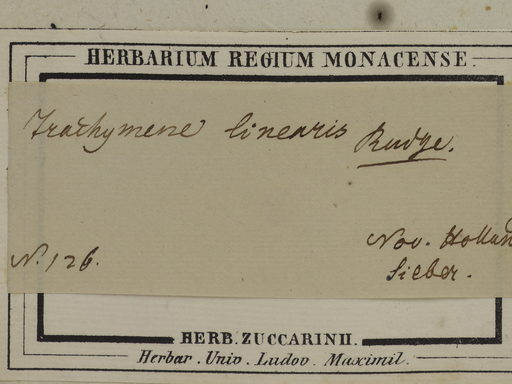 HERBARIUM REGIUM MONACENSE.
Trachymene linearis Rudge.
Nov. Hollan
N. 126.
Sieber.
HERB. ZUCCARINII.
Herbar. Univ. Ludov. Maximil.